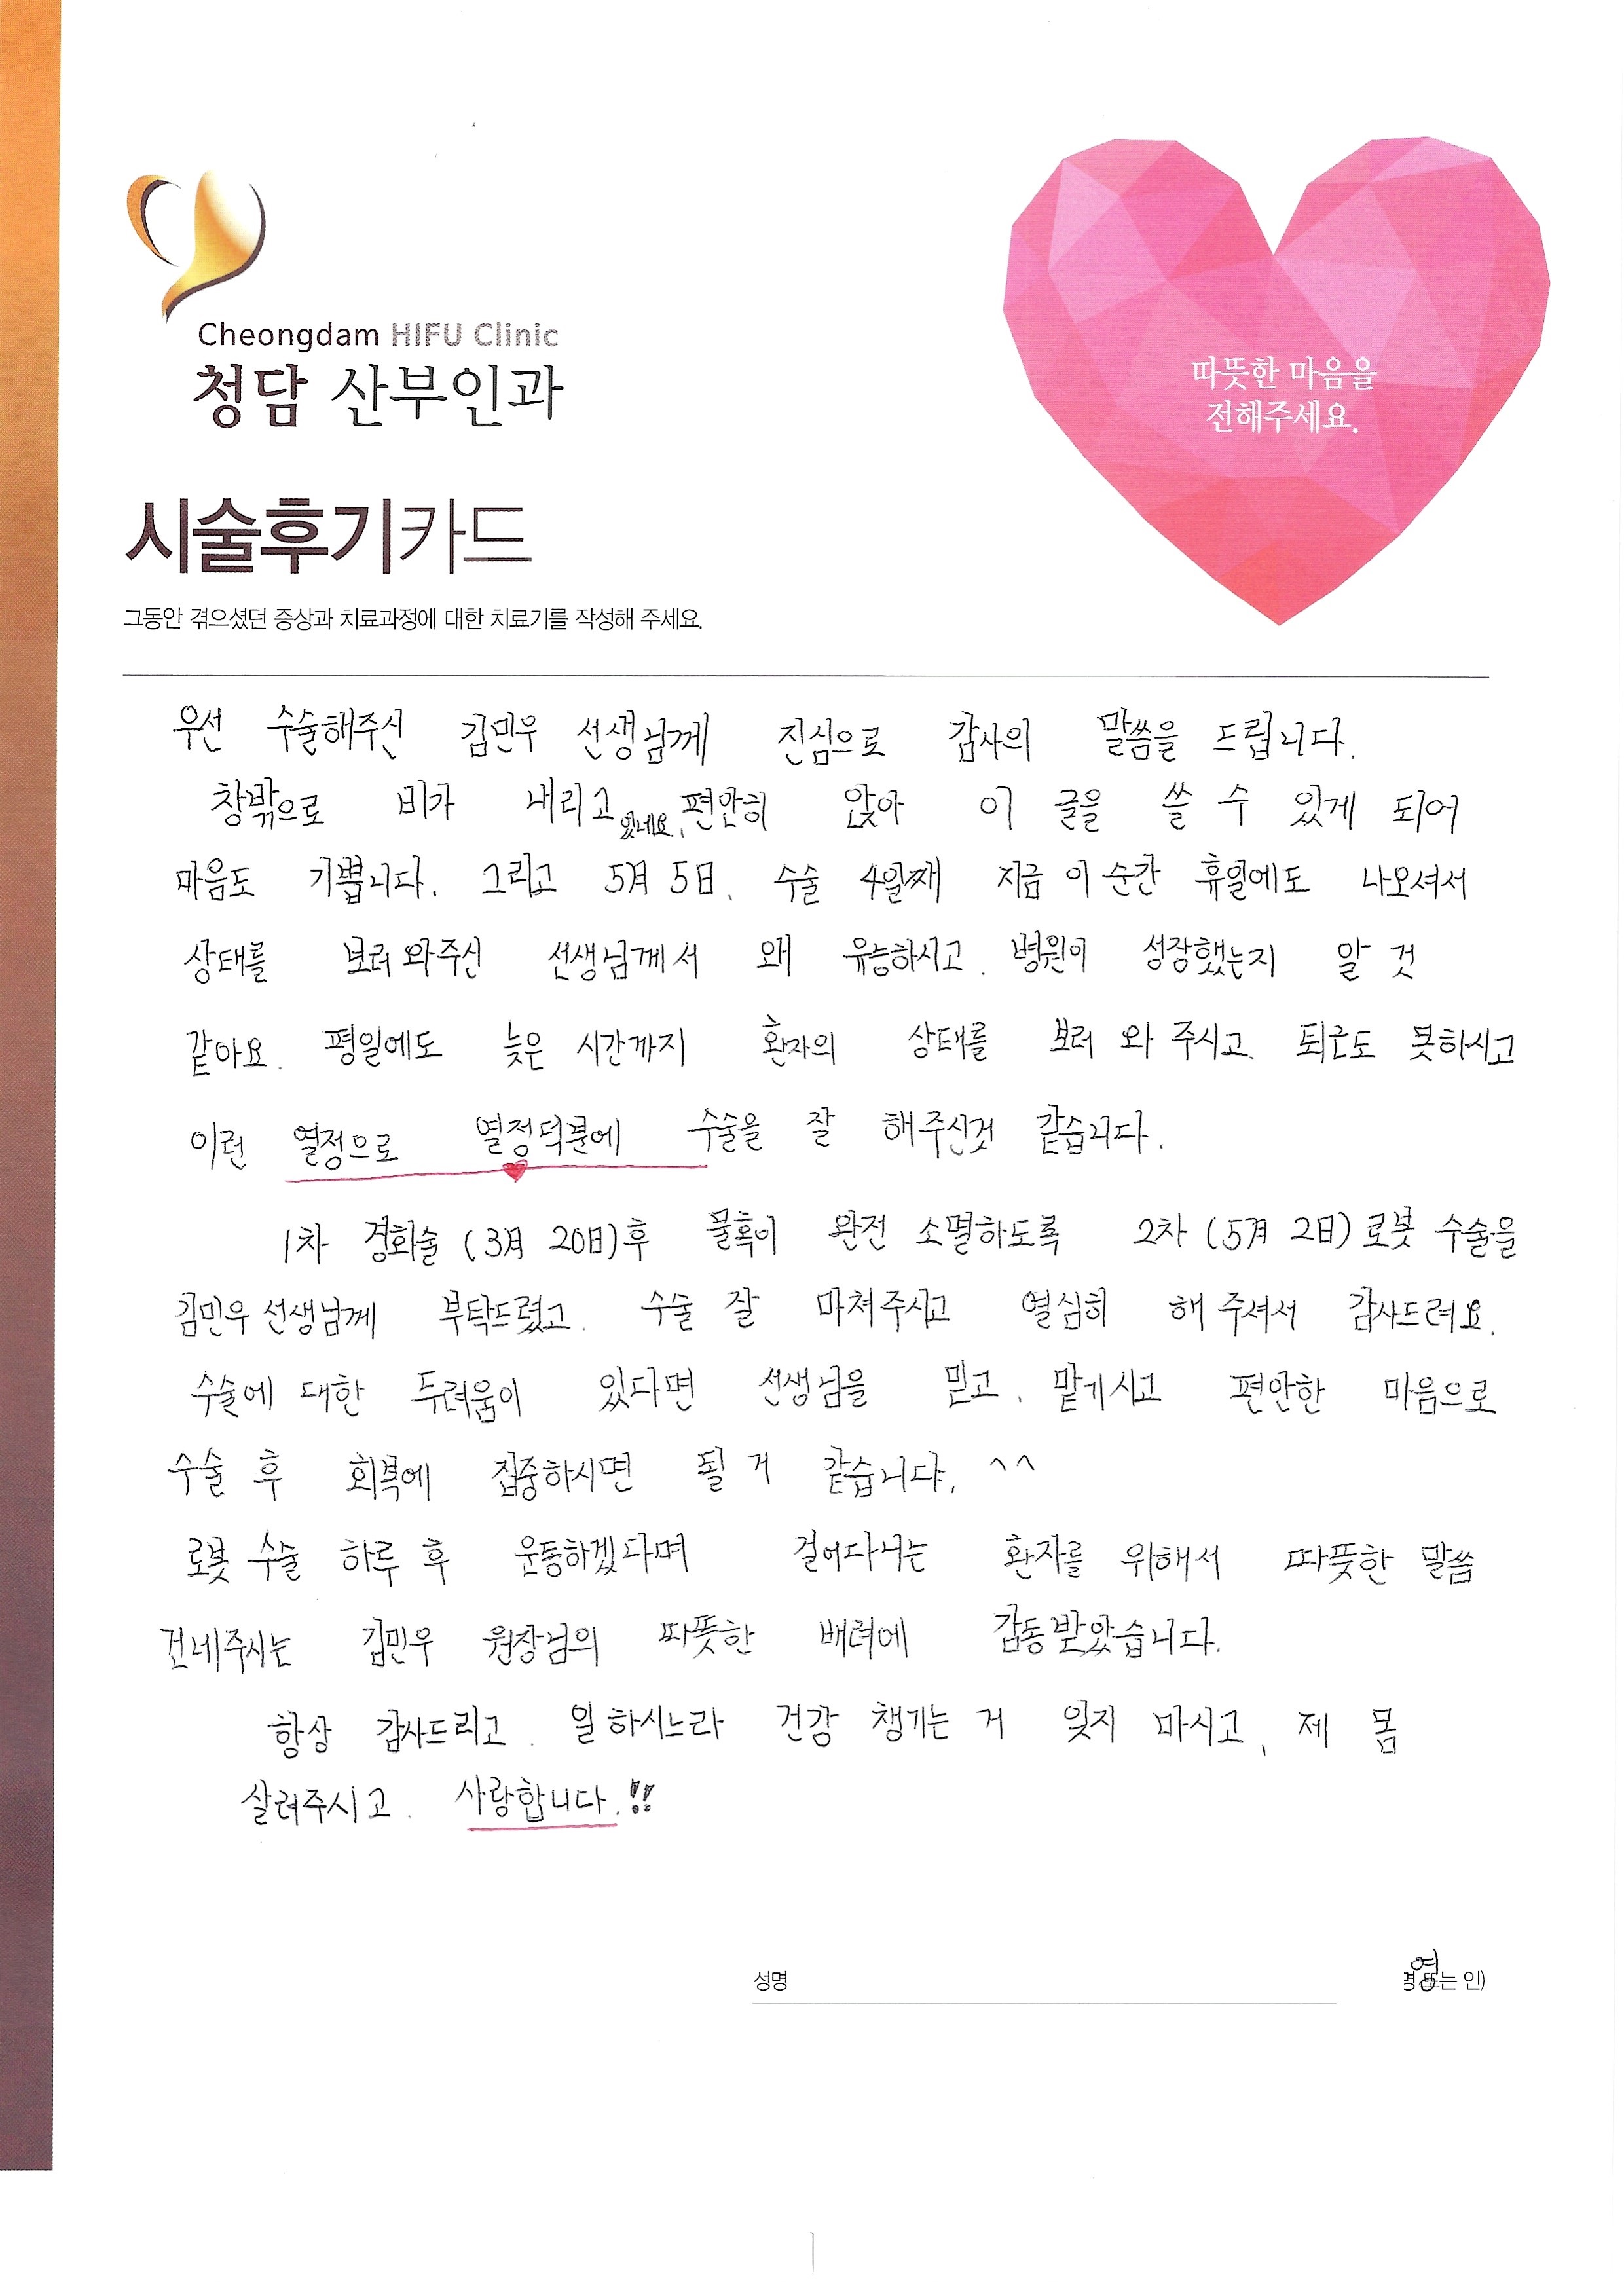 Cheongdam HIFU Clinic
청담 산부인과
따뜻한 마음을
전해주세요.
시술후기카드
그동안 겪으셨던 증상과 치료과정에 대한 치료기를 작성해 주세요.
우선 수술해주신 김민우 선생님께 진심으로 감사의 말씀을 드립니다.
창밖으로 비가 내리고 있네요, 편안히 앉아 이 글을 쓸 수 있게 되어
마음도 기쁩니다. 그리고 5月 5日, 수술 4일째 지금 이 순간 휴일에도 나오셔서
상태를 보러 와주신 선생님께서 왜 유능하시고, 병원이 성장했는지 알 것
같아요. 평일에도 늦은 시간까지 환자의 상태를 보러 와 주시고, 퇴근도 못하시고
이런 열정으로 열정덕분에 수술을 잘 해주신것 같습니다.
1차 경화술 (3月 20日)후 물혹이 완전 소멸하도록 2차 (5月 2日) 로봇 수술을
김민우 선생님께 부탁드렸고, 수술 잘 마쳐주시고 열심히 해 주셔서 감사드려요.
수술에 대한 두려움이 있다면 선생님을 믿고, 맡기시고 편안한 마음으로
수술 후 회복에 집중하시면 될 거 같습니다. ^^
로봇 수술 하루 후 운동하겠다며 걸어다니는 환자를 위해서 따뜻한 말씀
건네주시는 김민우 원장님의 따뜻한 배려에 감동받았습니다.
항상 감사드리고, 일하시느라 건강 챙기는 거 잊지 마시고, 제 몸
살려주시고. 사랑합니다.!!
성명
영
는 인)